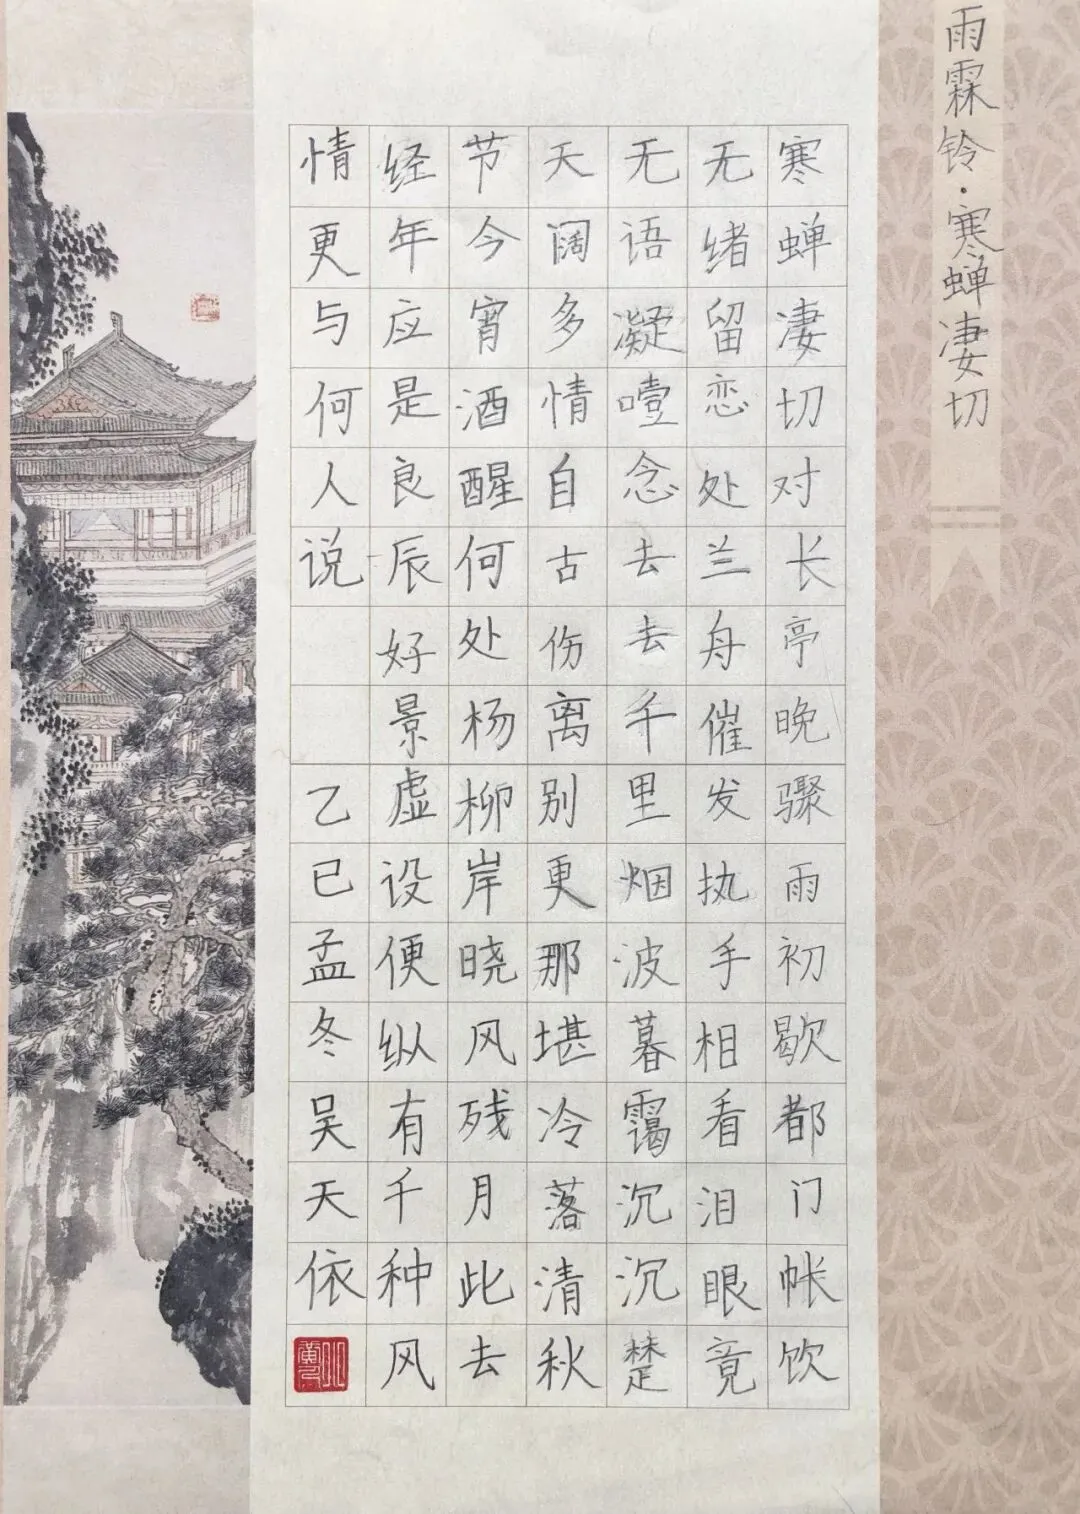 雨霖铃·寒蝉凄切
寒蝉凄切对长亭晚骤雨初歇都门帐饮
无绪留恋处兰舟催发执手相看泪眼竟
无语凝噎念去去千里烟波暮霭沉沉楚
天阔多情自古伤离别更那堪冷落清秋
节今宵酒醒何处杨柳岸晓风残月此去
经年应是良辰好景虚设便纵有千种风
情更与何人说
乙巳孟冬吴天依